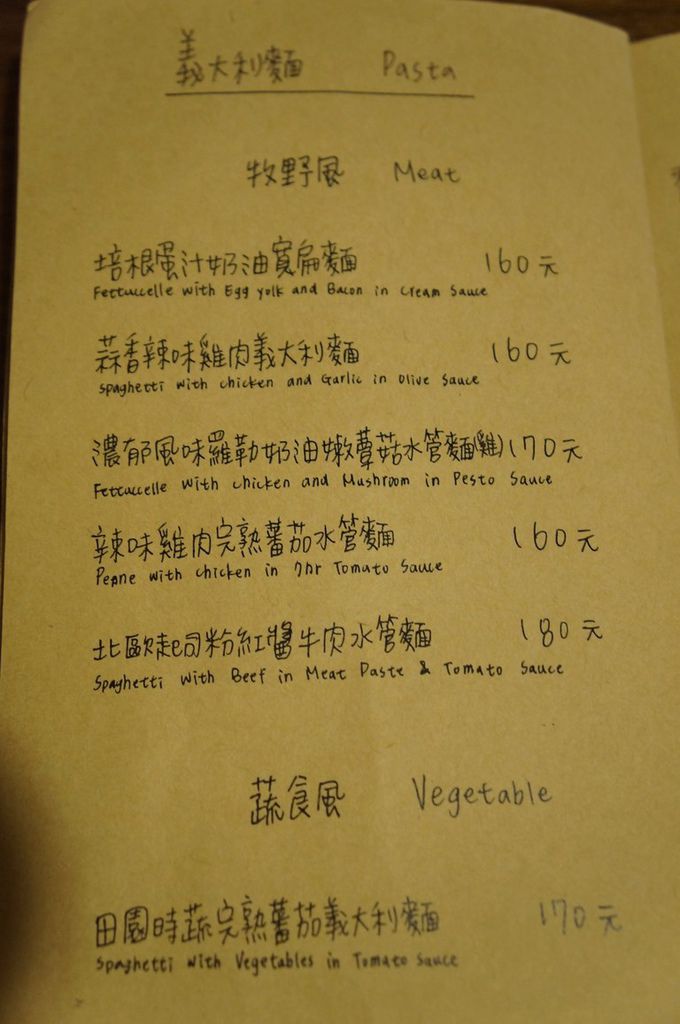 義大利麵 Pasta
牧野風 Meat
培根蛋汁奶油寬扁麵 160元
Fettuccelle with Egg yolk and Bacon in Cream Sauce
蒜香辣味雞肉義大利麵 160元
Spaghetti with chicken and Garlic in Olive Sauce
濃郁風味羅勒奶油嫩蘑菇水管麵(雞) 170元
Fettuccelle with chicken and Mushroom in Pesto Sauce
辣味雞肉完熟蕃茄水管麵 160元
Penne with chicken in Tomato Sauce
北歐起司粉紅醬牛肉水管麵 180元
Spaghetti with Beef in Meat Paste & Tomato Sauce
蔬食風 Vegetable
田園時蔬完熟蕃茄義大利麵 170元
Spaghetti with Vegetables in Tomato Sauce